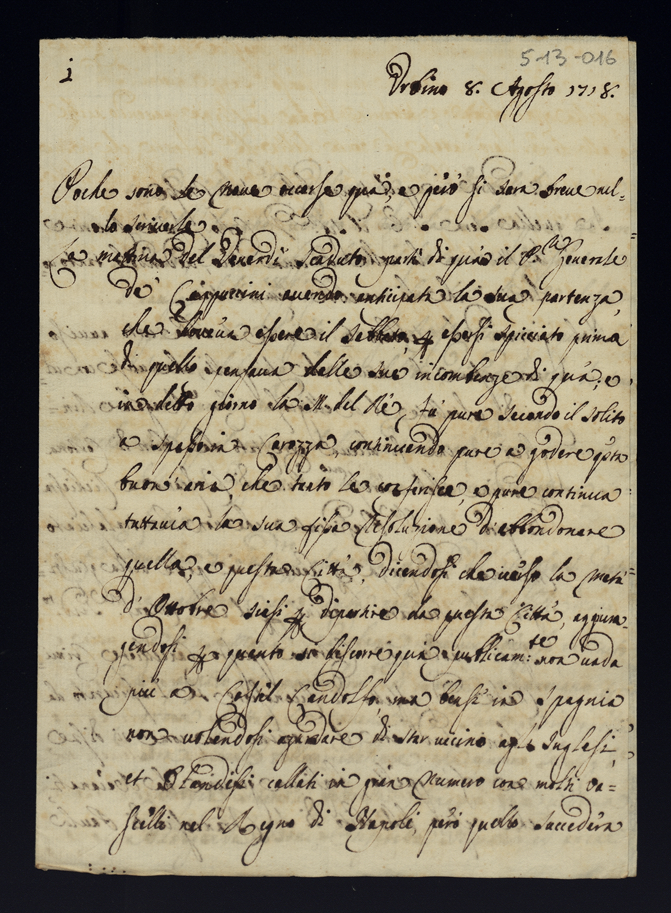 5-13-016
1
Urbino 8. Agosto 1718.
Poche sono le nuove occorse quà, e però si sarà breve nel-
lo scriverle.
La mattina del Venerdì scaduto partì di quà il P. Generale
de' Cappuccini avendo anticipata la sua partenza,
che doveva essere il Sabbato, per essersi spicciato prima
di quello pensava delle sue incombenze di quà; e
in detto giorno la M. del Rè fù pure secondo il solito
a spasso in Carozza continuando pure a godere qsta
buon' aria, che tanto le conferisce, e pure continua
tuttavia la sua fissa Resoluzione d'abbandonare
quella, e questa Città, dicendosi che verso la metà
d'Ottobre siasi per dipartire da questa Città, aggiun-
gendosi per quanto si discorre quà publicam:te non vada
più a Castel Gandolfo, ma bensì in Spagnia
non volendosi azardare di star vicino agl' Inglesi,
et Olandesi callati in gran numero con molti Va-
scelli nel Regno di Napoli, però quello succederà